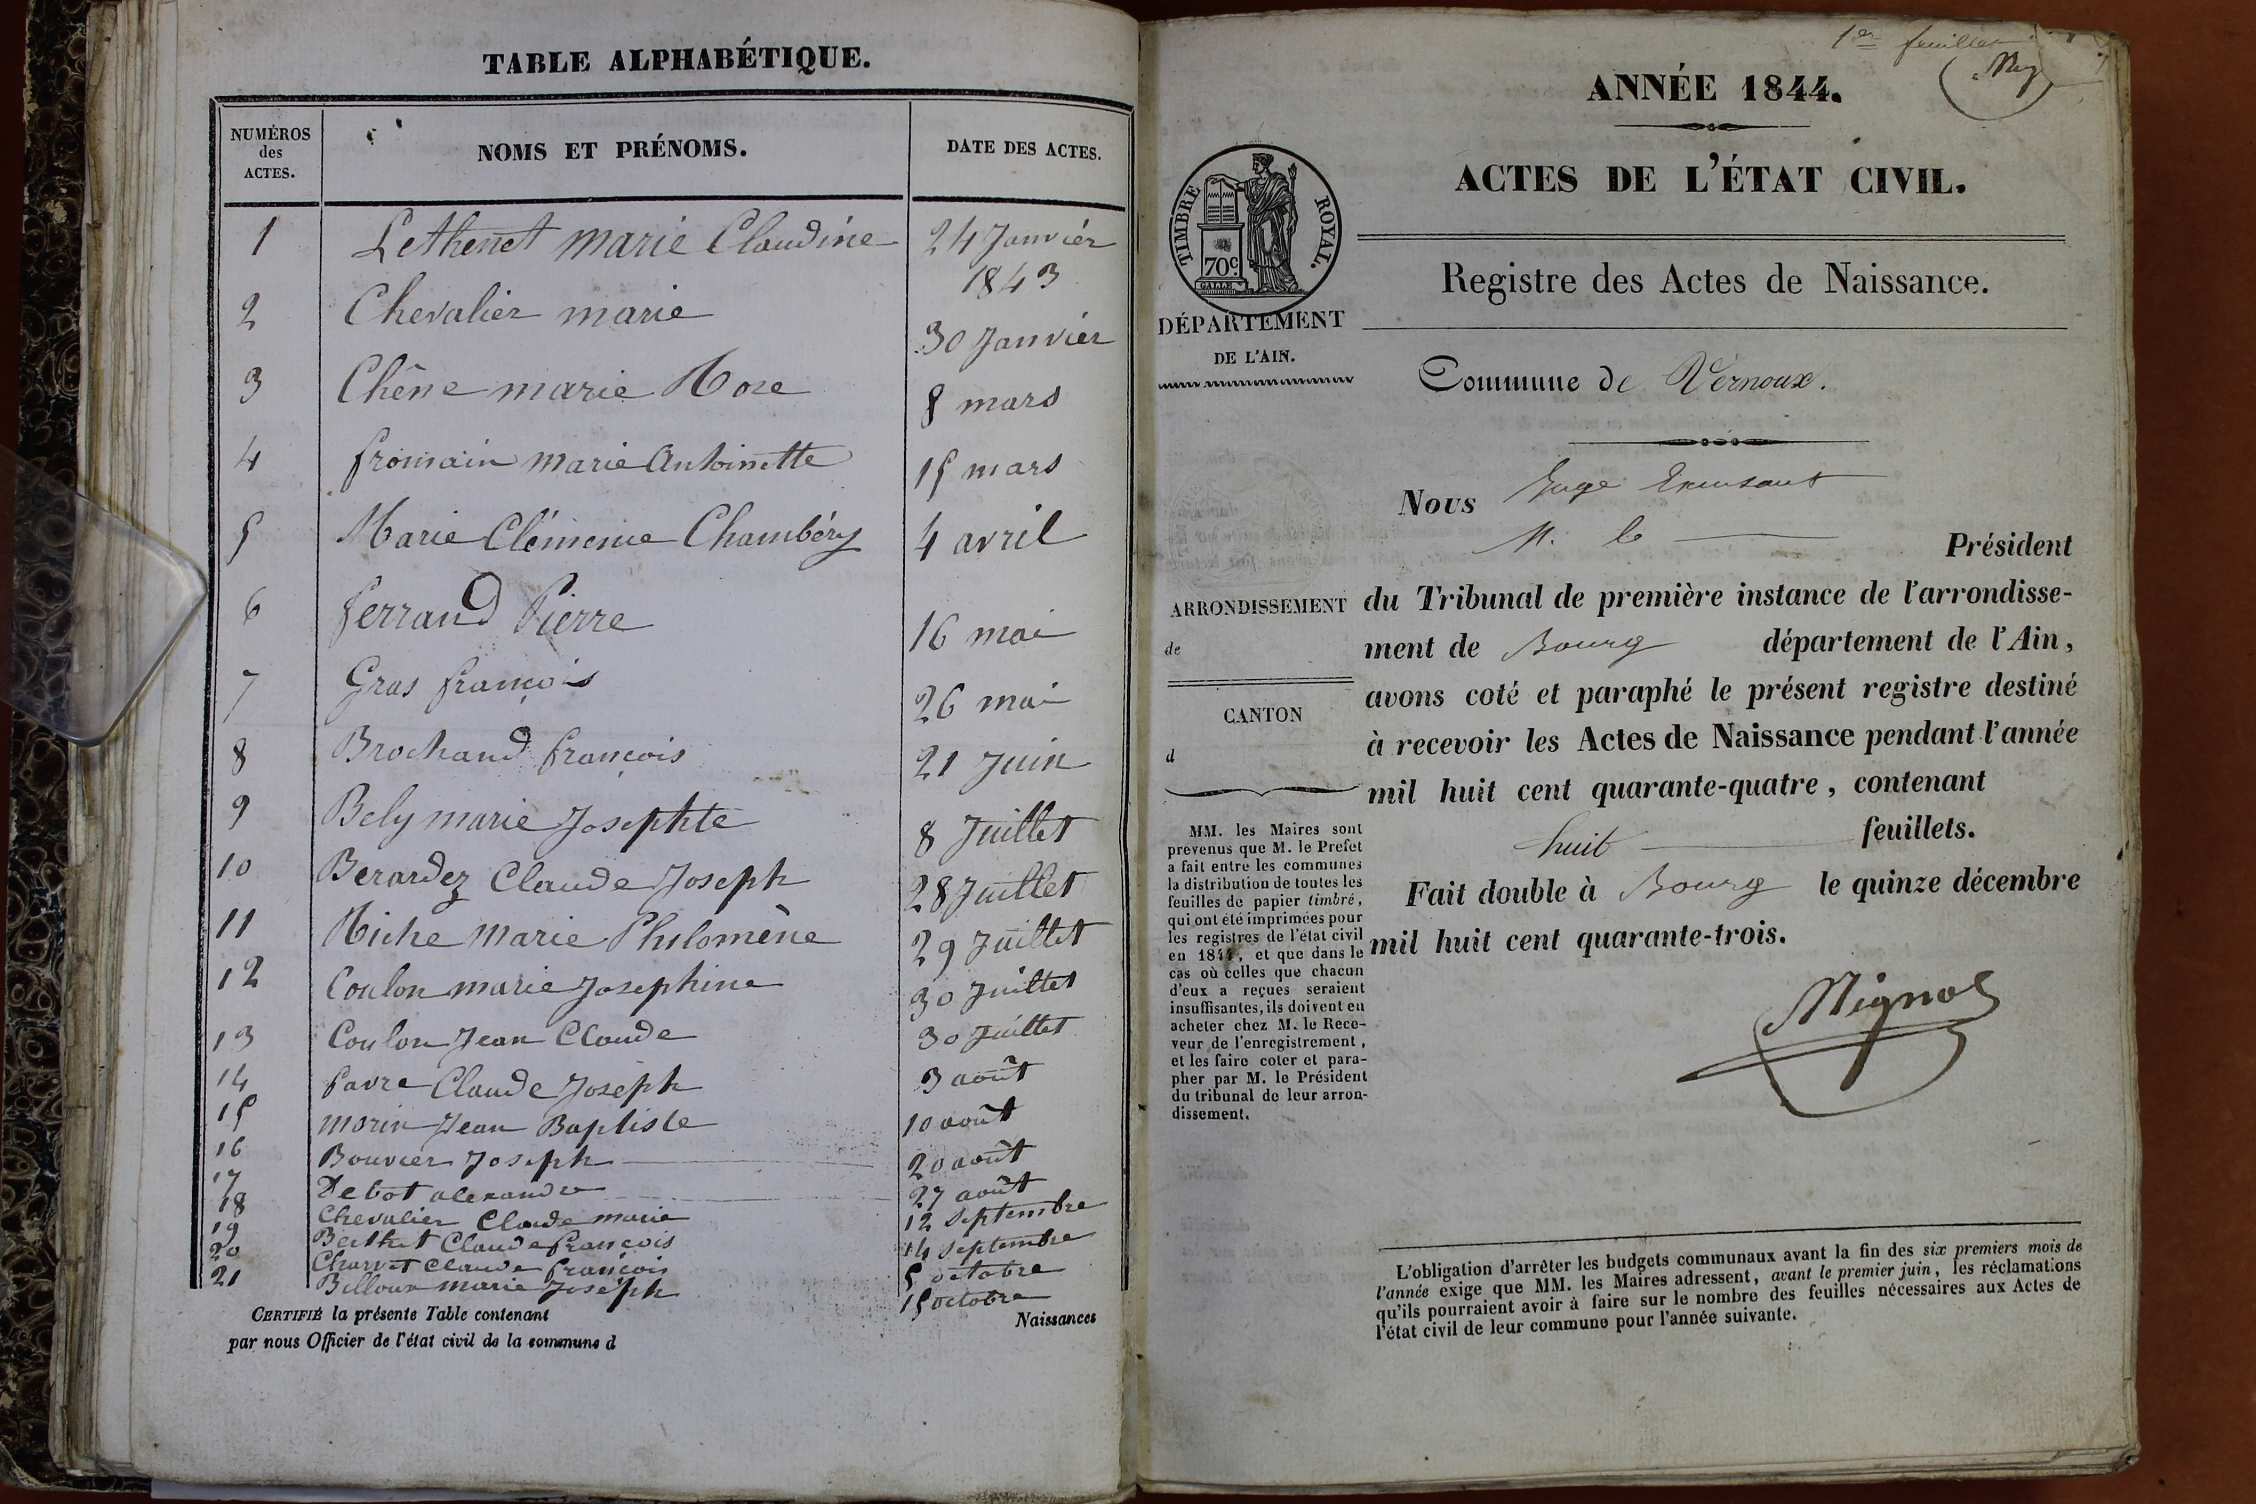 TABLE ALPHABÉTIQUE.
NUMÉROS des ACTES. NOMS ET PRÉNOMS. DATE DES ACTES.
1 Lethenet marie Claudine 24 Janvier 1843
2 Chevalier marie 30 Janvier
3 Chêne marie Rose 8 mars
4 fromain marie Antoinette 15 mars
5 Marie Clémence Chambéry 4 avril
6 ferrand Pierre 16 mai
7 Gras françois 26 mai
8 Brochand françois 21 Juin
9 Bely marie Josephte 8 Juillet
10 Berardez Claude Joseph 28 Juillet
11 Riche Marie Philomène 29 Juillet
12 Coulon marie Josephine 30 Juillet
13 Coulon Jean Claude 30 Juillet
14 favre Claude Joseph 3 août
15 morin Jean Baptiste 10 août
16 Bouvier Joseph 20 août
17 Debot alexandre 27 août
18 Chevalier Claude marie 12 septembre
19 Berthet Claude françois 14 septembre
20 Charvet Claude françois 5 octobre
21 Billoux marie Joseph 15 octobre
CERTIFIÉ la présente Table contenant Naissances
par nous Officier de l'état civil de la commune d
1er feuillet
ANNÉE 1844.
ACTES DE L'ÉTAT CIVIL.
TIMBRE ROYAL.
70c.
Registre des Actes de Naissance.
DÉPARTEMENT
DE L'AIN.
Commune de Vernoux.
Nous Juge
M. le Président
ARRONDISSEMENT
de
CANTON
d
du Tribunal de première instance de l'arrondisse-
ment de Bourg département de l'Ain,
avons coté et paraphé le présent registre destiné
à recevoir les Actes de Naissance pendant l'année
mil huit cent quarante-quatre, contenant
huit feuillets.
Fait double à Bourg le quinze décembre
mil huit cent quarante-trois.
MM. les Maires sont
prévenus que M. le Préfet
a fait entre les communes
la distribution de toutes les
feuilles de papier timbré,
qui ont été imprimées pour
les registres de l'état civil
en 1844, et que dans le
cas où celles que chacun
d'eux a reçues seraient
insuffisantes, ils doivent en
acheter chez M. le Rece-
veur de l'enregistrement,
et les faire coter et para-
pher par M. le Président
du tribunal de leur arron-
dissement.
L'obligation d'arrêter les budgets communaux avant la fin des six premiers mois de
l'année exige que MM. les Maires adressent, avant le premier juin, les réclamations
qu'ils pourraient avoir à faire sur le nombre des feuilles nécessaires aux Actes de
l'état civil de leur commune pour l'année suivante.